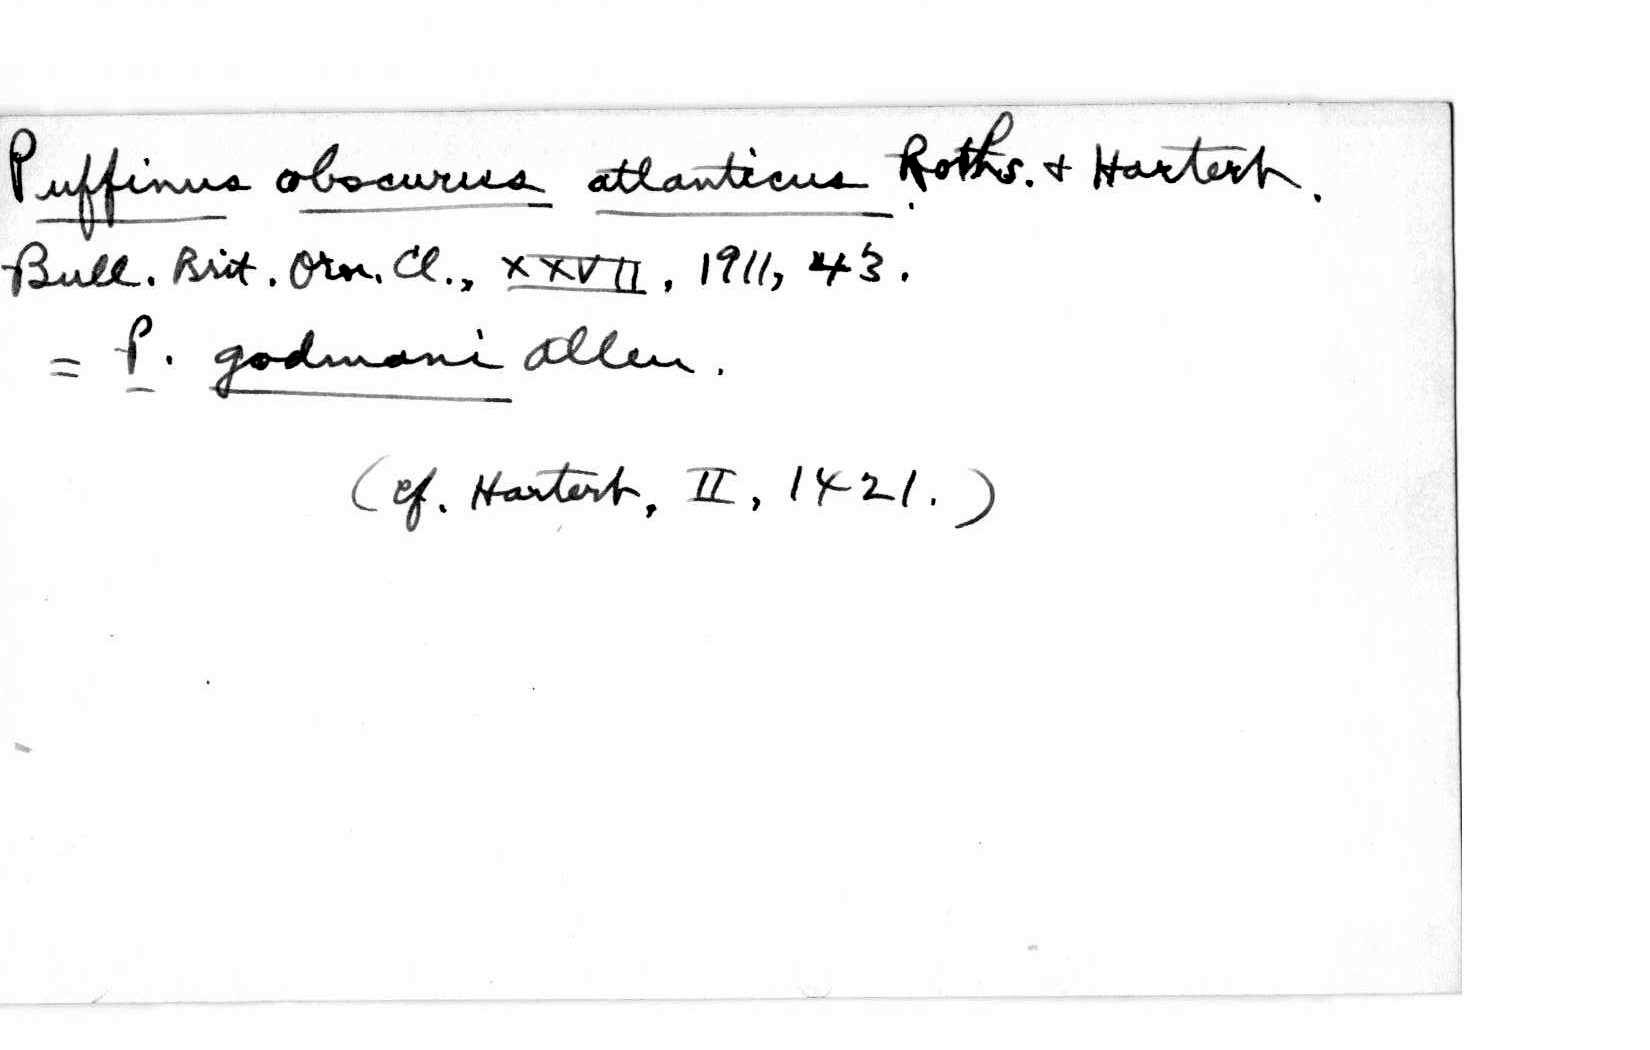 Puffinus obscurus atlanticus Roths. & Hartert.
Bull. Brit. Orn. Cl., XXVII, 1911, 43.
= P. godmani Allen.
(cf. Hartert, II, 1421.)